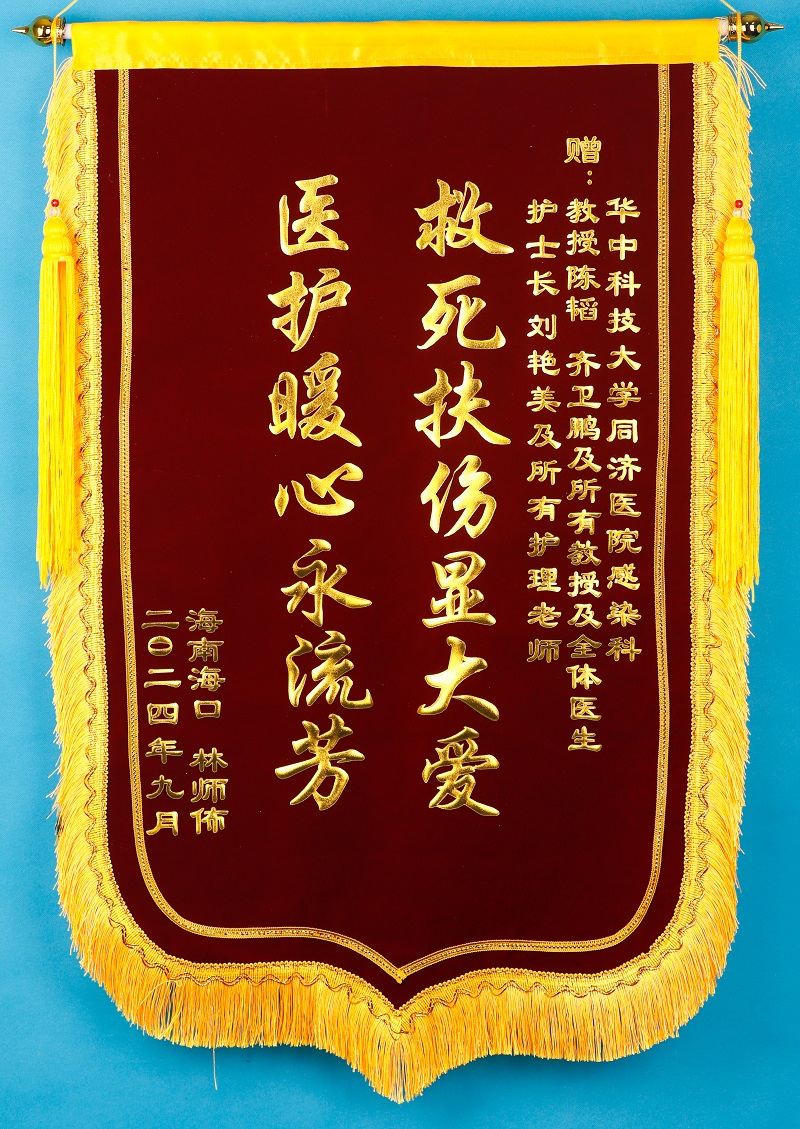 赠：
华中科技大学同济医院感染科
教授陈韬 齐卫鹏及所有教授及全体医生
护士长刘艳美及所有护理老师
救死扶伤显大爱
医护暖心永流芳
海南海口 林师佈
二〇二四年九月